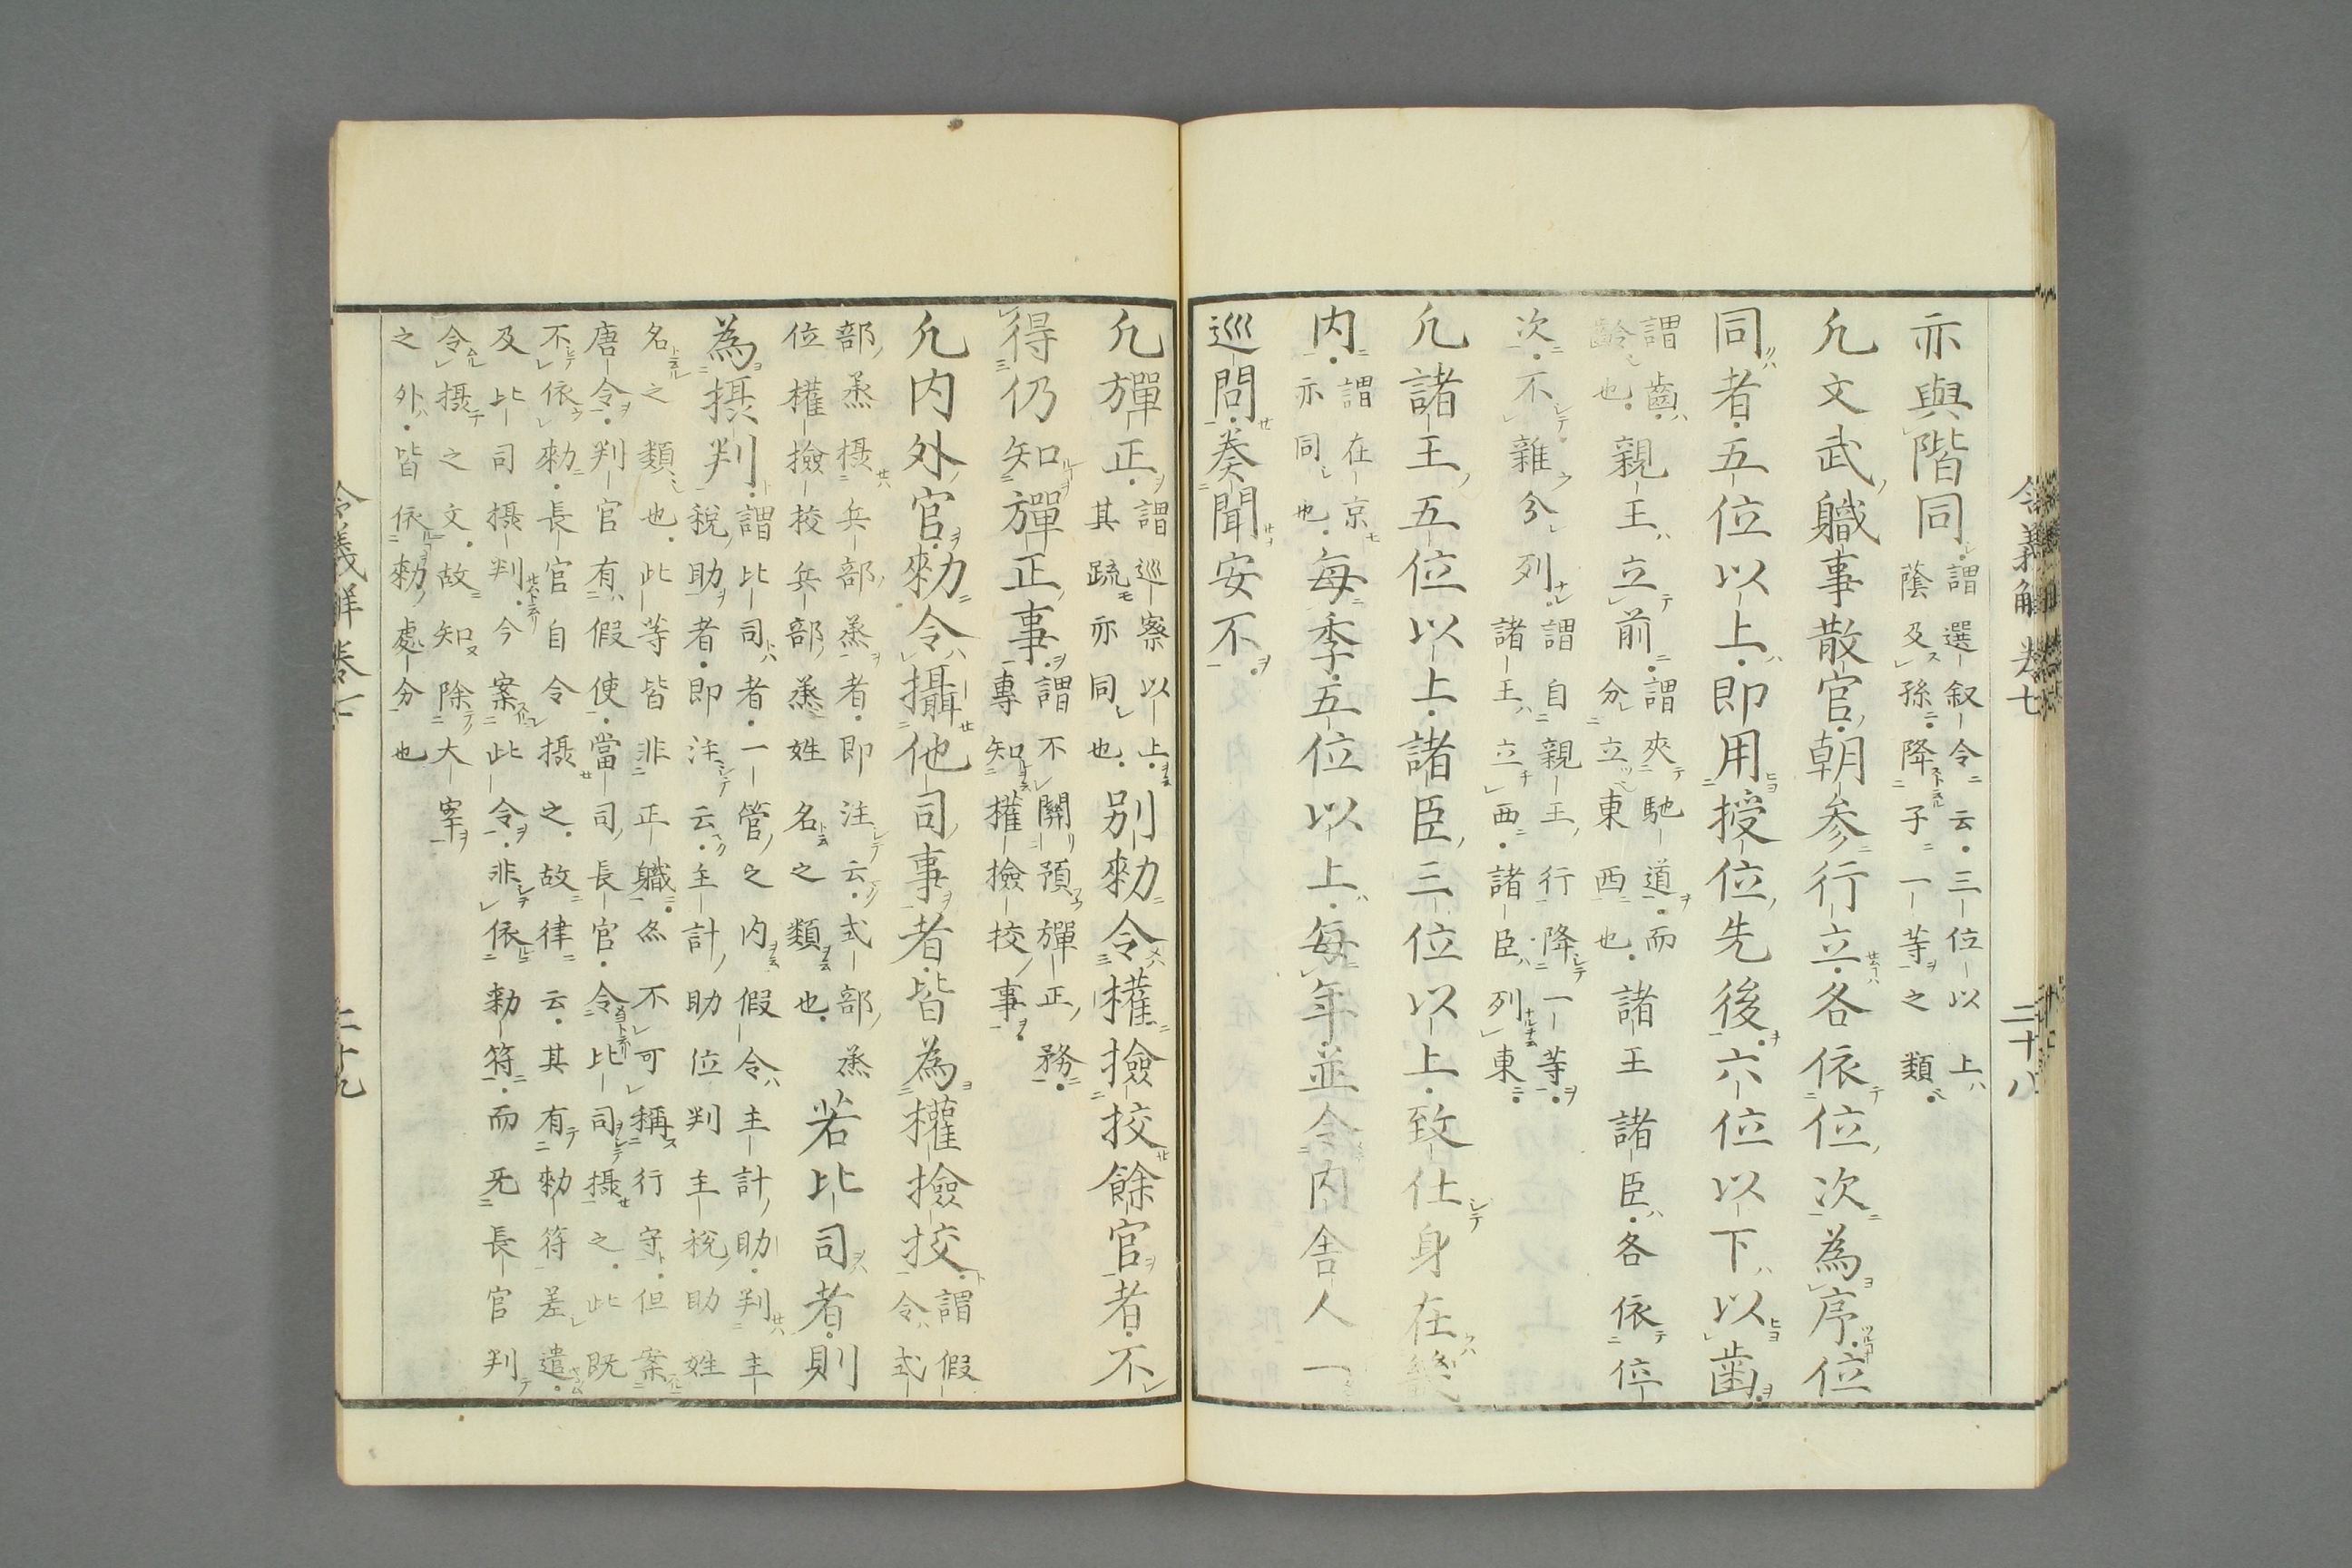 令義解卷七 二十八
亦與階同謂選叙令云三位以上
蔭及孫降子一等之類
凢文武職事散官朝参行立各依位次為序位
同者五位以上即用授位先後六位以下以齒
謂齒
齡也
親王立前謂夾馳道而
分立東西也
諸王諸臣各依位
次不雜分列謂自親王行降一等
諸王立西諸臣列東
凢諸王五位以上諸臣三位以上致仕身在畿
内謂在京
亦同也
每季五位以上每年並令内舎人一
巡問奏聞安不
凢彈正謂巡察以上
其疏亦同也
別勑令權撿挍餘官者不
得仍知彈正事謂不關預彈正務
專知權撿挍事
凢内外官勑令攝他司事者皆為權撿挍謂假
令式
部丞摂兵部丞者即注云式部丞
位權撿挍兵部丞姓名之類也
若比司者則
為摂判謂比司者一管之内假令主計助判主
税助者即注云主計助位判主税助姓
名之類也此等皆非正職亦不可稱行守但案
唐令判官有假使當司長官令比司摂之此既
不依勑長官自令摂之故律云其有勑符差遣
及比司摂判今案此令非依勑符而旡長官判
令摂之文故知除大宰
之外皆依勑處分也
令義解卷七 二十九